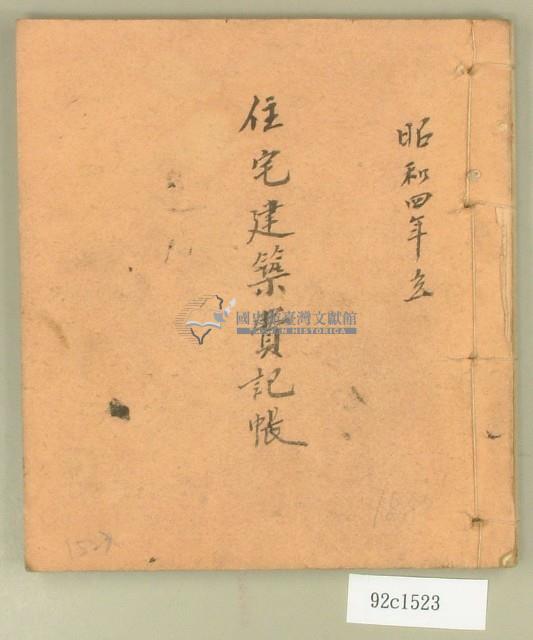 昭和四年立
住宅建築費記帳
國史館臺灣文獻館
TAIWAN HISTORICA
92c1523